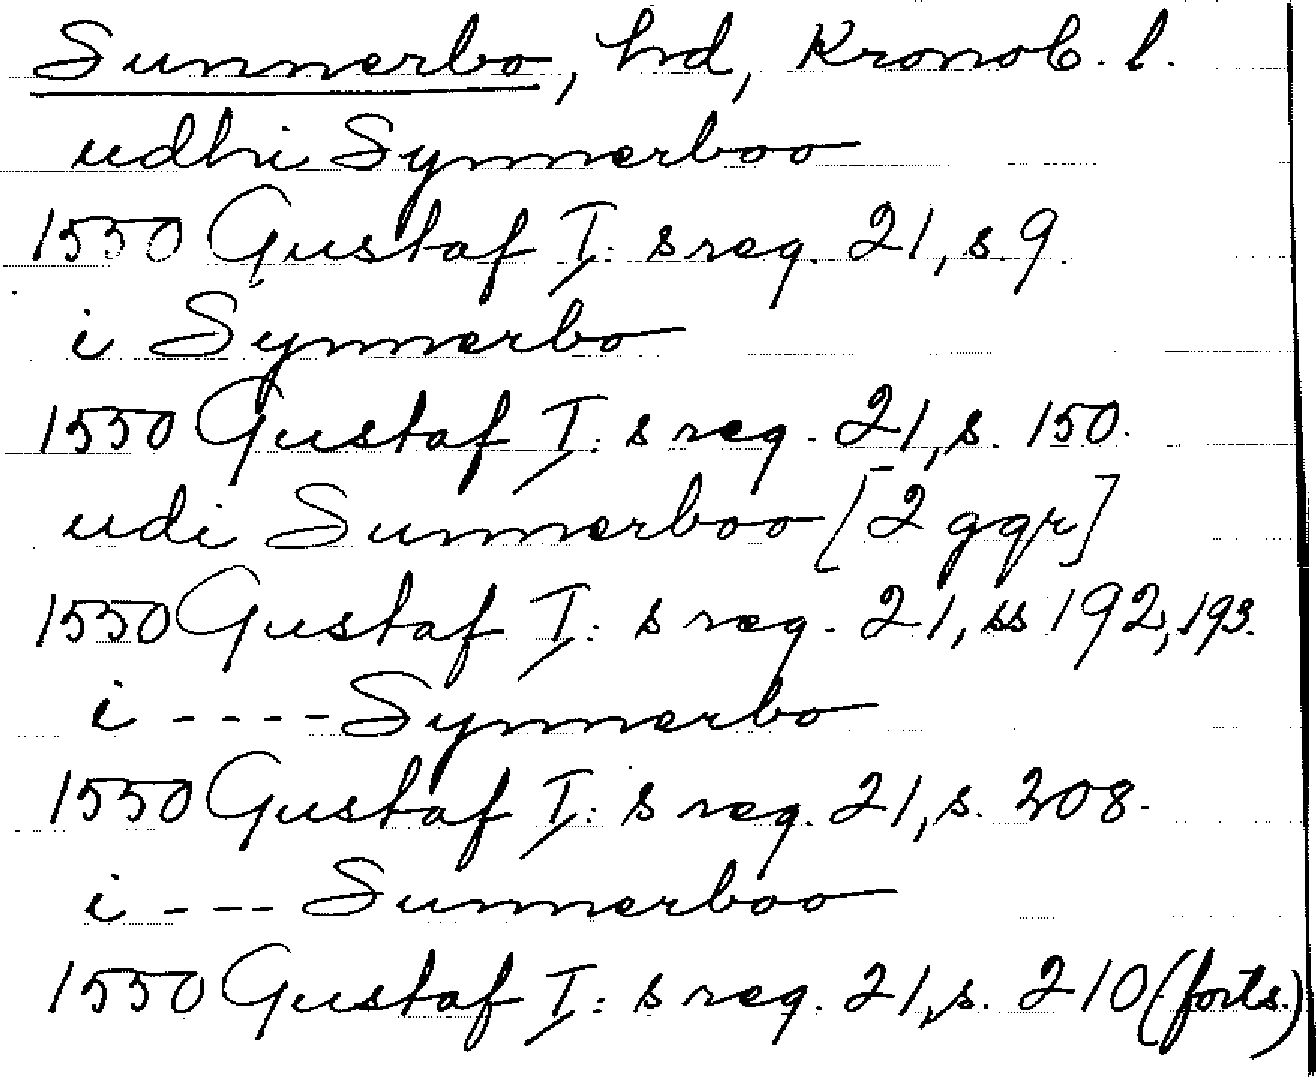 Sunnerbo, hd, Kronob. l.
udhi Synnerboo
1550 Gustaf I: s reg. 21, s. 9.
i Synnerbo
1550 Gustaf I: s reg. 21, s. 150.
udi Sunnerboo [2 ggr]
1550 Gustaf I: s reg. 21, ss 192, 193.
i ---- Synnerbo
1550 Gustaf I: s reg. 21, s. 208.
i --- Sunnerboo
1550 Gustaf I: s reg. 21, s. 210 (forts.)